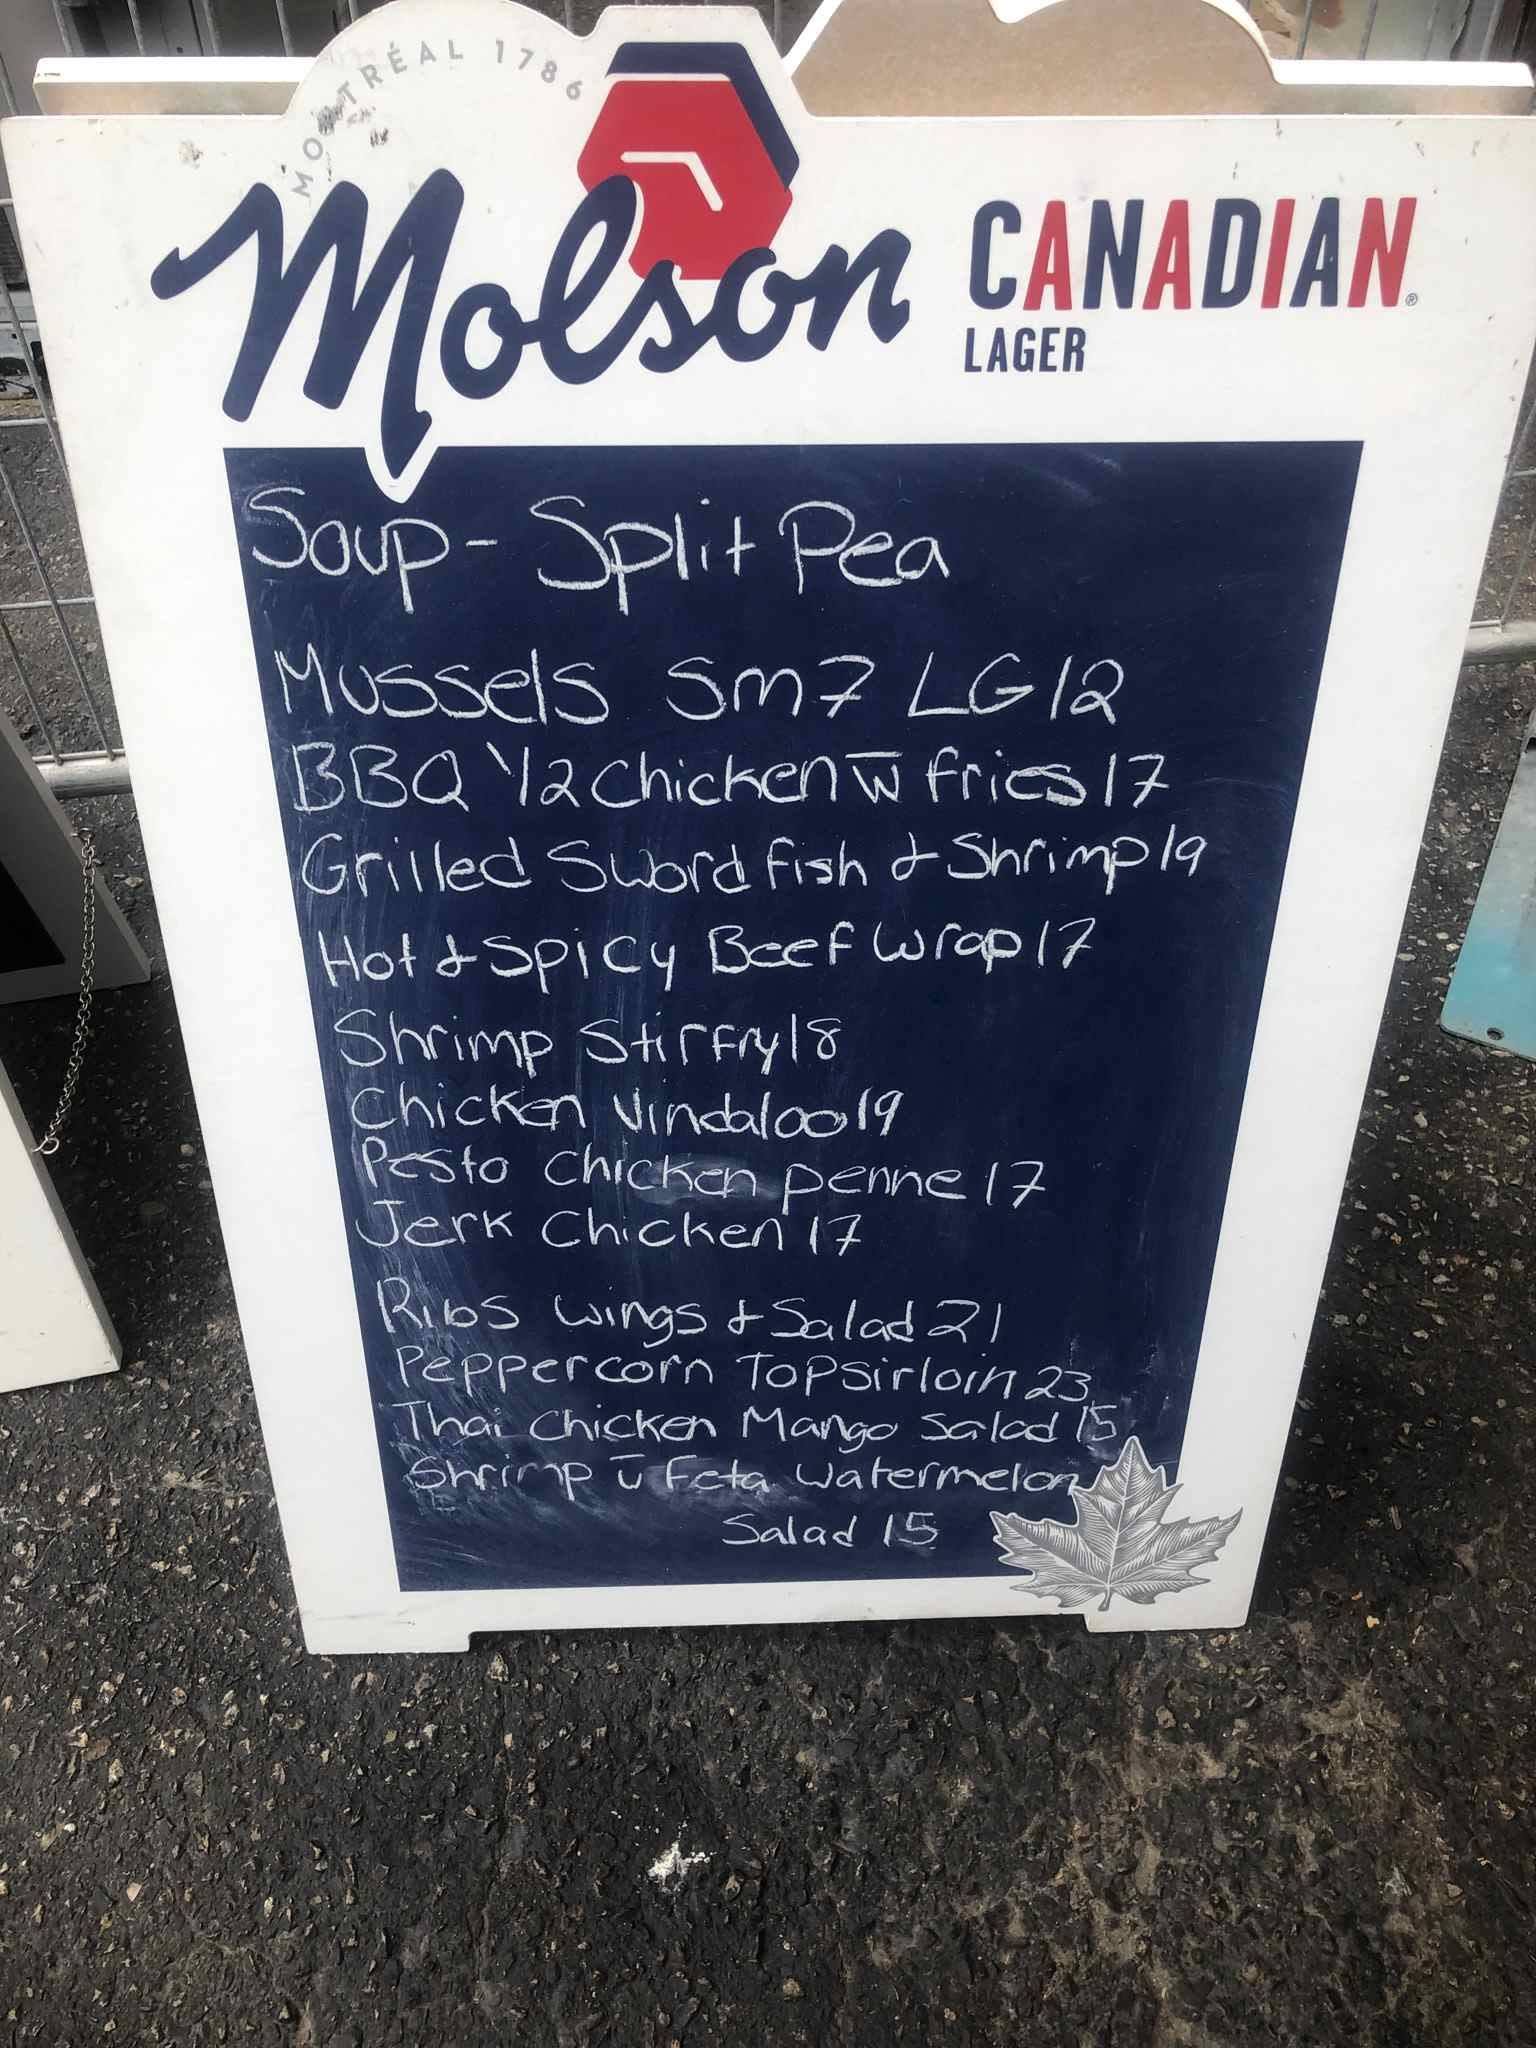 MONTRÉAL 1786
Molson CANADIAN®
LAGER
Soup - Split Pea
Mussels Sm 7 LG 12
BBQ 1/2 Chicken w̅ fries 17
Grilled Swordfish & Shrimp 19
Hot & Spicy Beef Wrap 17
Shrimp Stirfry 18
Chicken Vindaloo 19
Pesto Chicken penne 17
Jerk Chicken 17
Ribs Wings & Salad 21
Peppercorn Top Sirloin 23
Thai Chicken Mango Salad 15
Shrimp w̅ Feta Watermelon
Salad 15